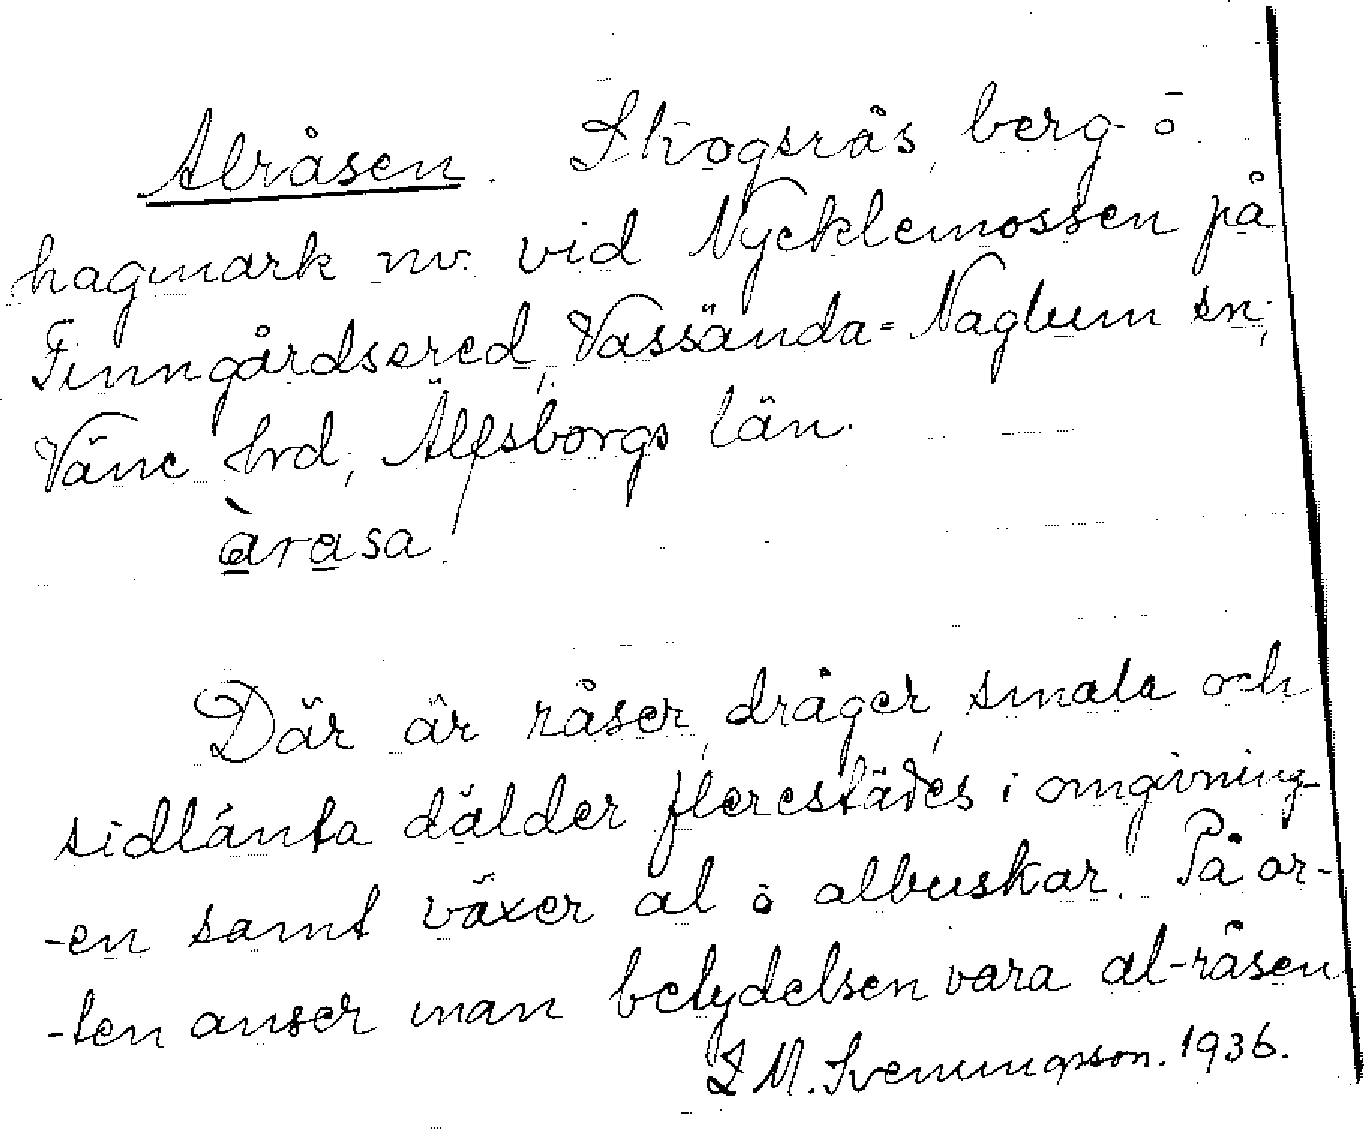 Alråsen. Skogsrås, berg- ō
hagmark nv. vid Nycklemossen på
Finngårdsered, Vassända-Naglum sn;
Väne hrd, Älfsborgs län.
àrasa
Där är råser, dråger, smala och
sidlänta dälder flerestädes i omgivning-
-en samt växer al ō albuskar. På or-
-ten anser man betydelsen vara al-råsen
S M. Svenungsson. 1936.